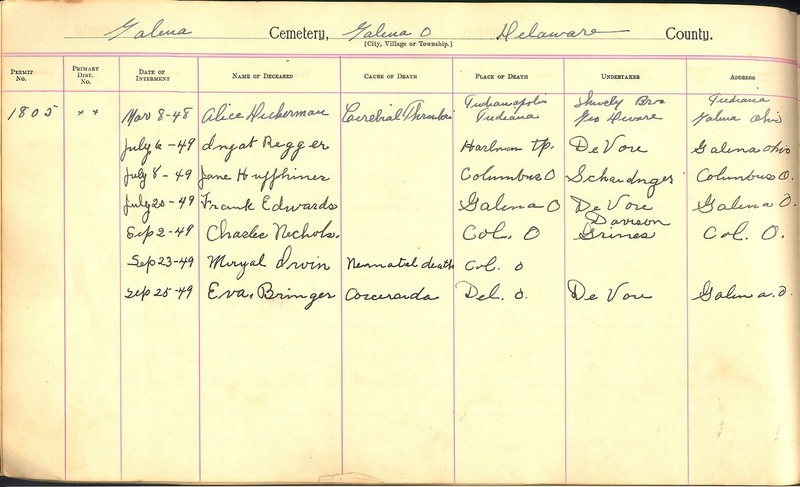 Galena Cemetery, Galena O Delaware County.
[City, Village or Township.]
Permit No. Primary Dist. No. Date of Interment Name of Deceased Cause of Death Place of Death Undertaker Address
1805 x x Mar 8-48 Alice Hickerman Cerebial Indianapolis Indiana Shively Bros Geo Indiana Galena Ohio
July 6-49 Regger Harlem Tp. DeVore Galena Ohio
July 8-49 Jane Huffhines Columbus O Columbus O.
July 20-49 Frank Edwards Galena O De Vore Galena O.
Sep 2-49 Charlee Nichols. Col. O Davison Grines Col. O.
Sep 23-49 Irwin death Col. O
Sep 25-49 Eva Bringer Del. O. De Vore Galena. O.